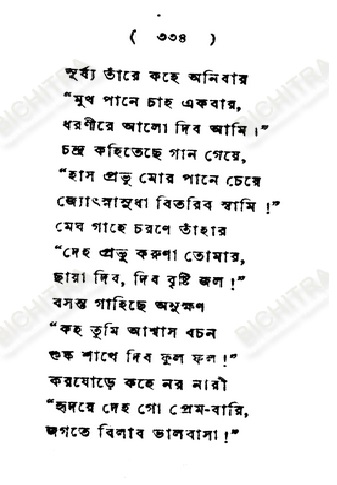 ( ৩৩৪ )
সূর্য্য তাঁরে কহে অনিবার
“মুখ পানে চাহ একবার,
ধরণীরে আলো দিব আমি।”
চন্দ্র কহিতেছে গান গেয়ে,
“হাস প্রভু মোর পানে চেয়ে
জ্যোৎস্নাসুধা বিতরিব স্বামি!”
মেঘ গাহে চরণে তাঁহার
“দেহ প্রভু করুণা তোমার,
ছায়া দিব, দিব বৃষ্টি জল!”
বসন্ত গাহিছে অনুক্ষণ
“কহ তুমি আশ্বাস বচন
শুষ্ক শাখে দিব ফুল ফল!”
করযোড়ে কহে নর নারী
“হৃদয়ে দেহ গো প্রেম-বারি,
জগতে বিলাব ভালবাসা!”
BICHITRA
BICHITRA
BICHITRA
BICHITRA